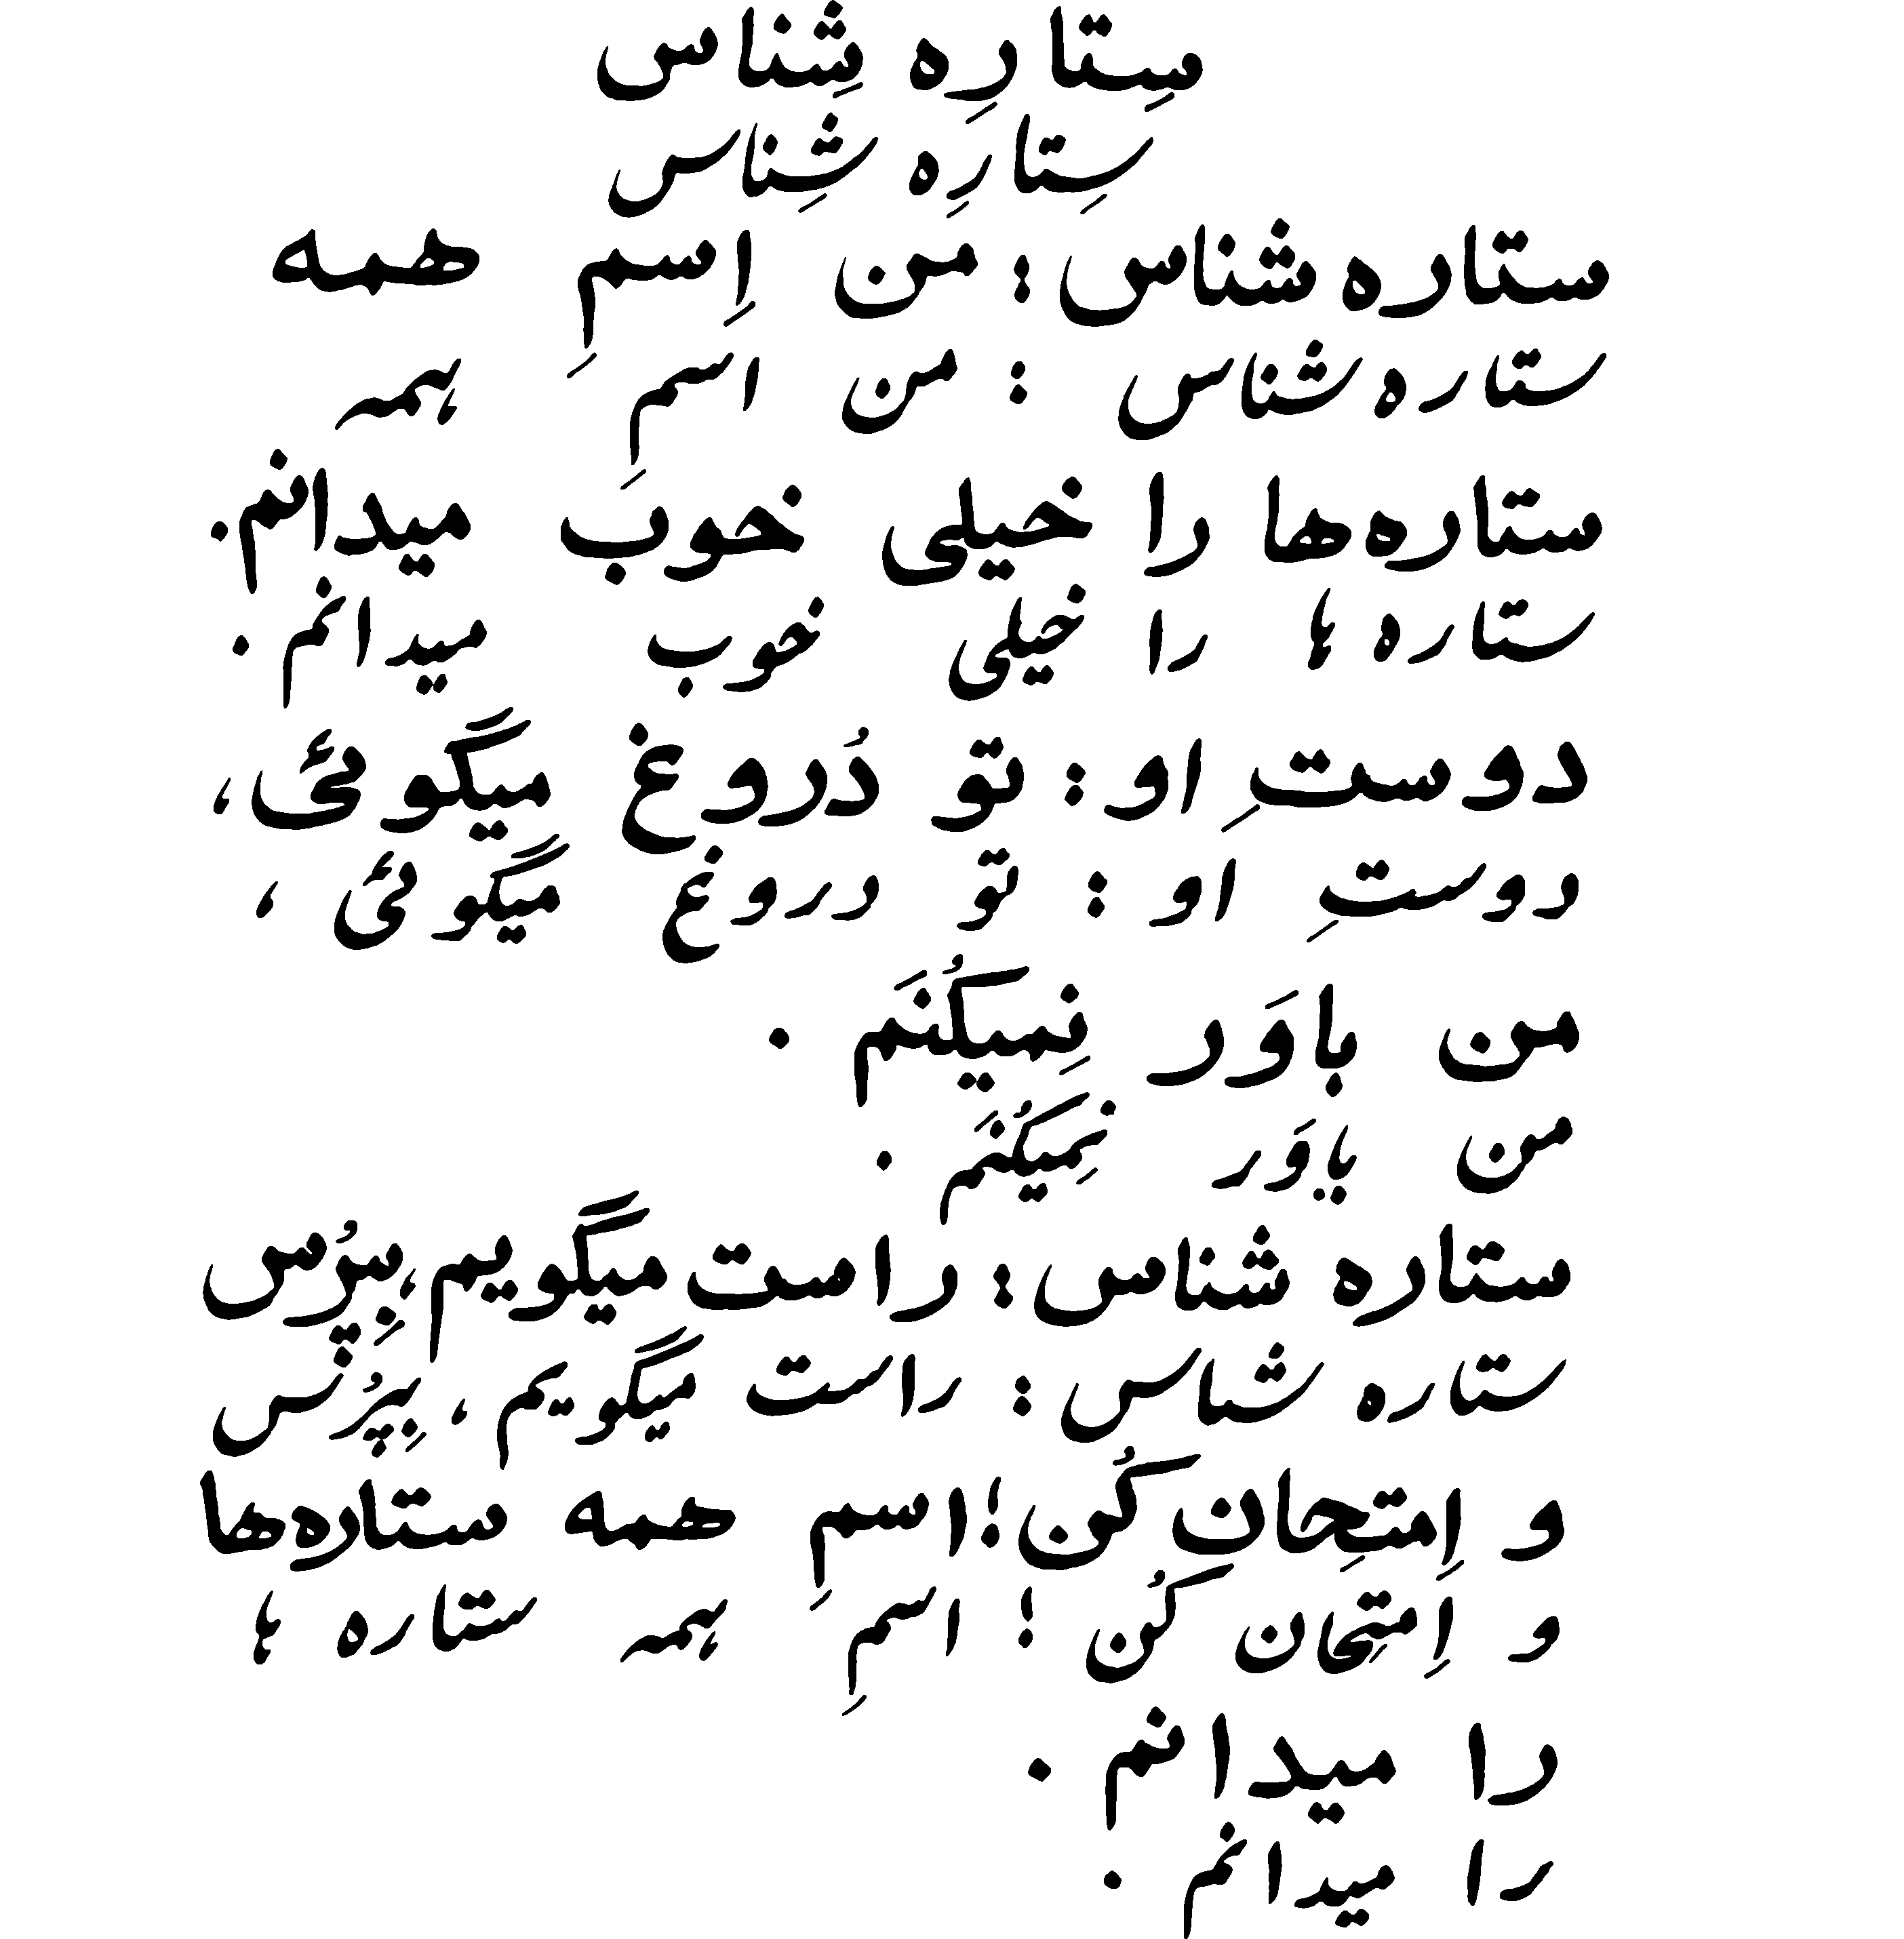 سِتارِه شِناس
سِتارِه شِناس
ستاره شناس : من اِسمِ همه
ستاره شناس : من اسمِ همه
ستاره‌ها را خیلی خوب میدانم .
ستاره ها را خیلی خوب میدانم .
دوستِ او : تو دُروغ میگوئی ،
دوستِ او : تو دروغ میگوئی ،
من باوَر نِمیکُنَم .
من باوَر نِمیکُنَم .
ستاره شناس : راست میگویم ، بِپُرس
ستاره شناس : راست میگویم ، بِپُرس
و اِمتِحان کُن ! اسمِ همه ستاره‌ها
و اِمتِحان کُن ! اسمِ همه ستاره ها
را میدانم .
را میدانم .